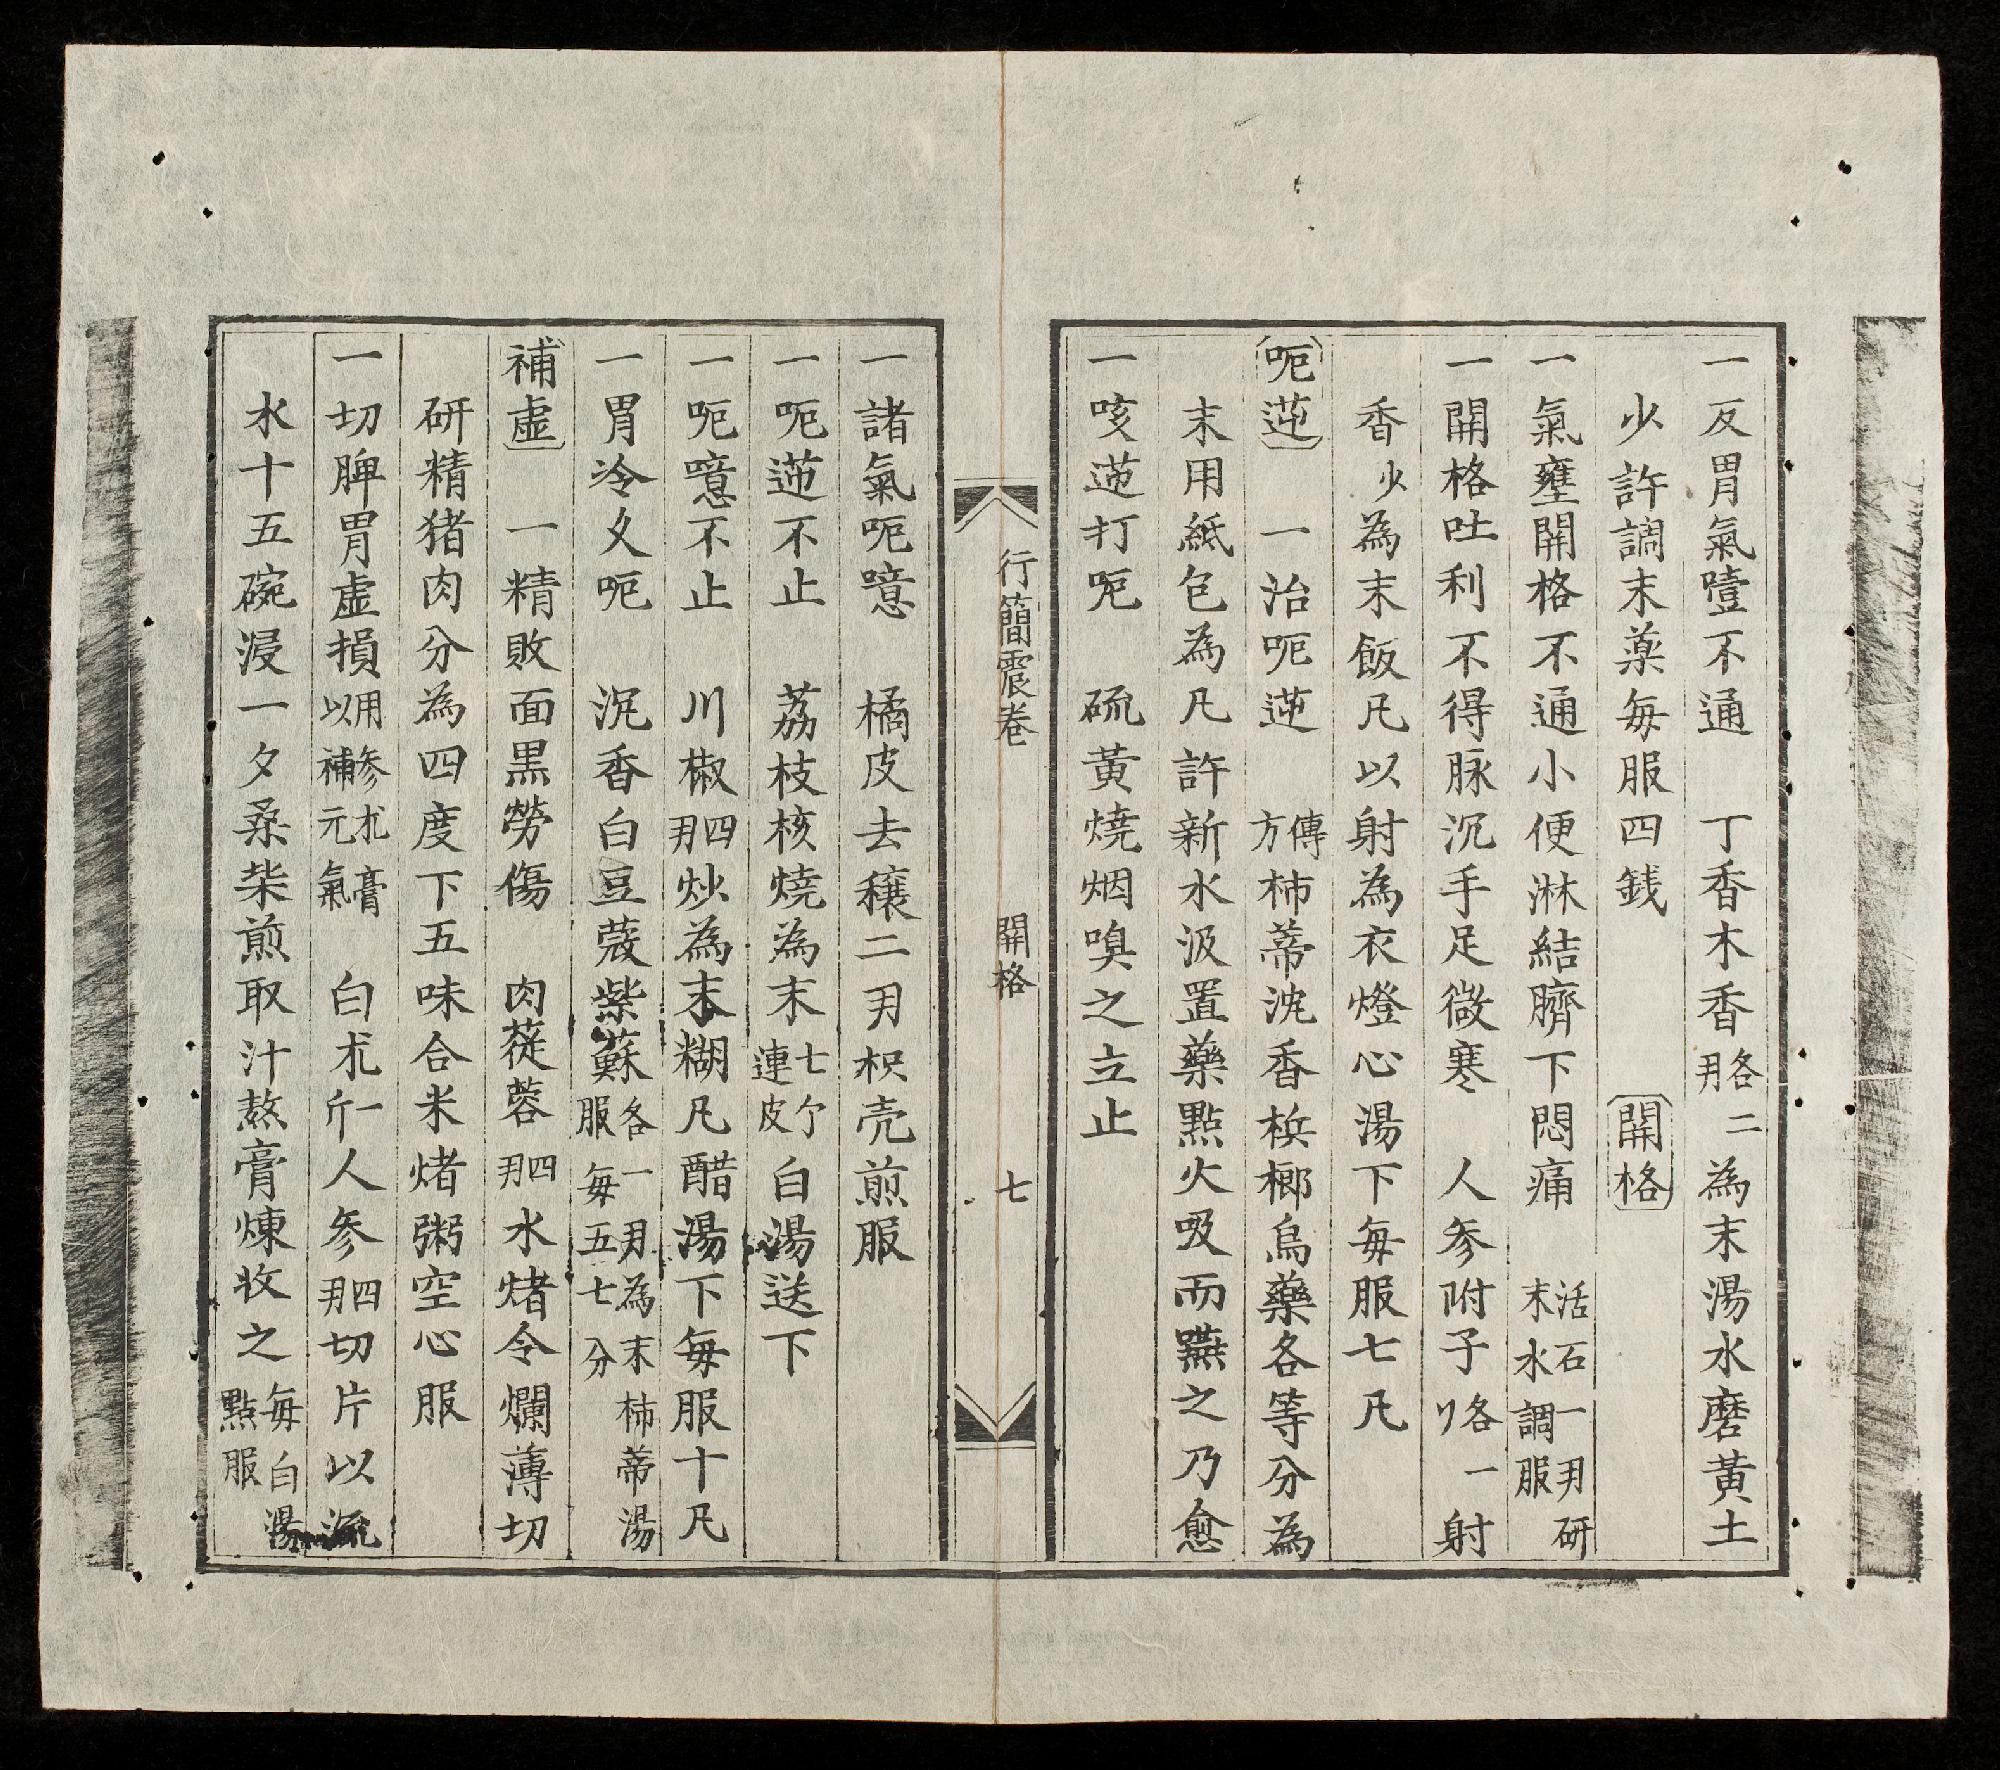 一反胃氣噎不通　丁香木香各二刄為末湯水磨黃土
少許調末薬毎服四銭　開格
一氣壅開格不通小便淋結臍下悶痛　活石一刄研末水調服
一開格吐利不得脉沉手足微寒　人参附子各一刂射
香少為末飯凡以射為衣燈心湯下毎服七凡
呃逆　一治呃逆　傳方柿蒂沈香梹榔烏藥各等分為
末用紙包為凡許新水汲置藥點火吸而嚥之乃愈
一咳逆打呃　硫黃燒烟嗅之立止
行簡震卷　開格　七
一諸氣呃噫　橘皮去穰二刄枳壳煎服
一呃逆不止　荔枝核燒為末七个連皮白湯送下
一呃噫不止　川椒四刄炒為末糊凡醋湯下毎服十凡
一胃冷久呃　沉香白豆蔻紫蘇各一刄為末柿蒂湯服毎五七分
補虛　一精敗面黒勞傷　肉蓯蓉四刄水煑令爛薄切
研精猪肉分為四度下五味合米煑粥空心服
一切脾胃虛損用参朮膏以補元氣　白朮一斤人参四刄切片以流
水十五碗浸一夕桑柴煎取汁熬膏煉收之毎白湯點服